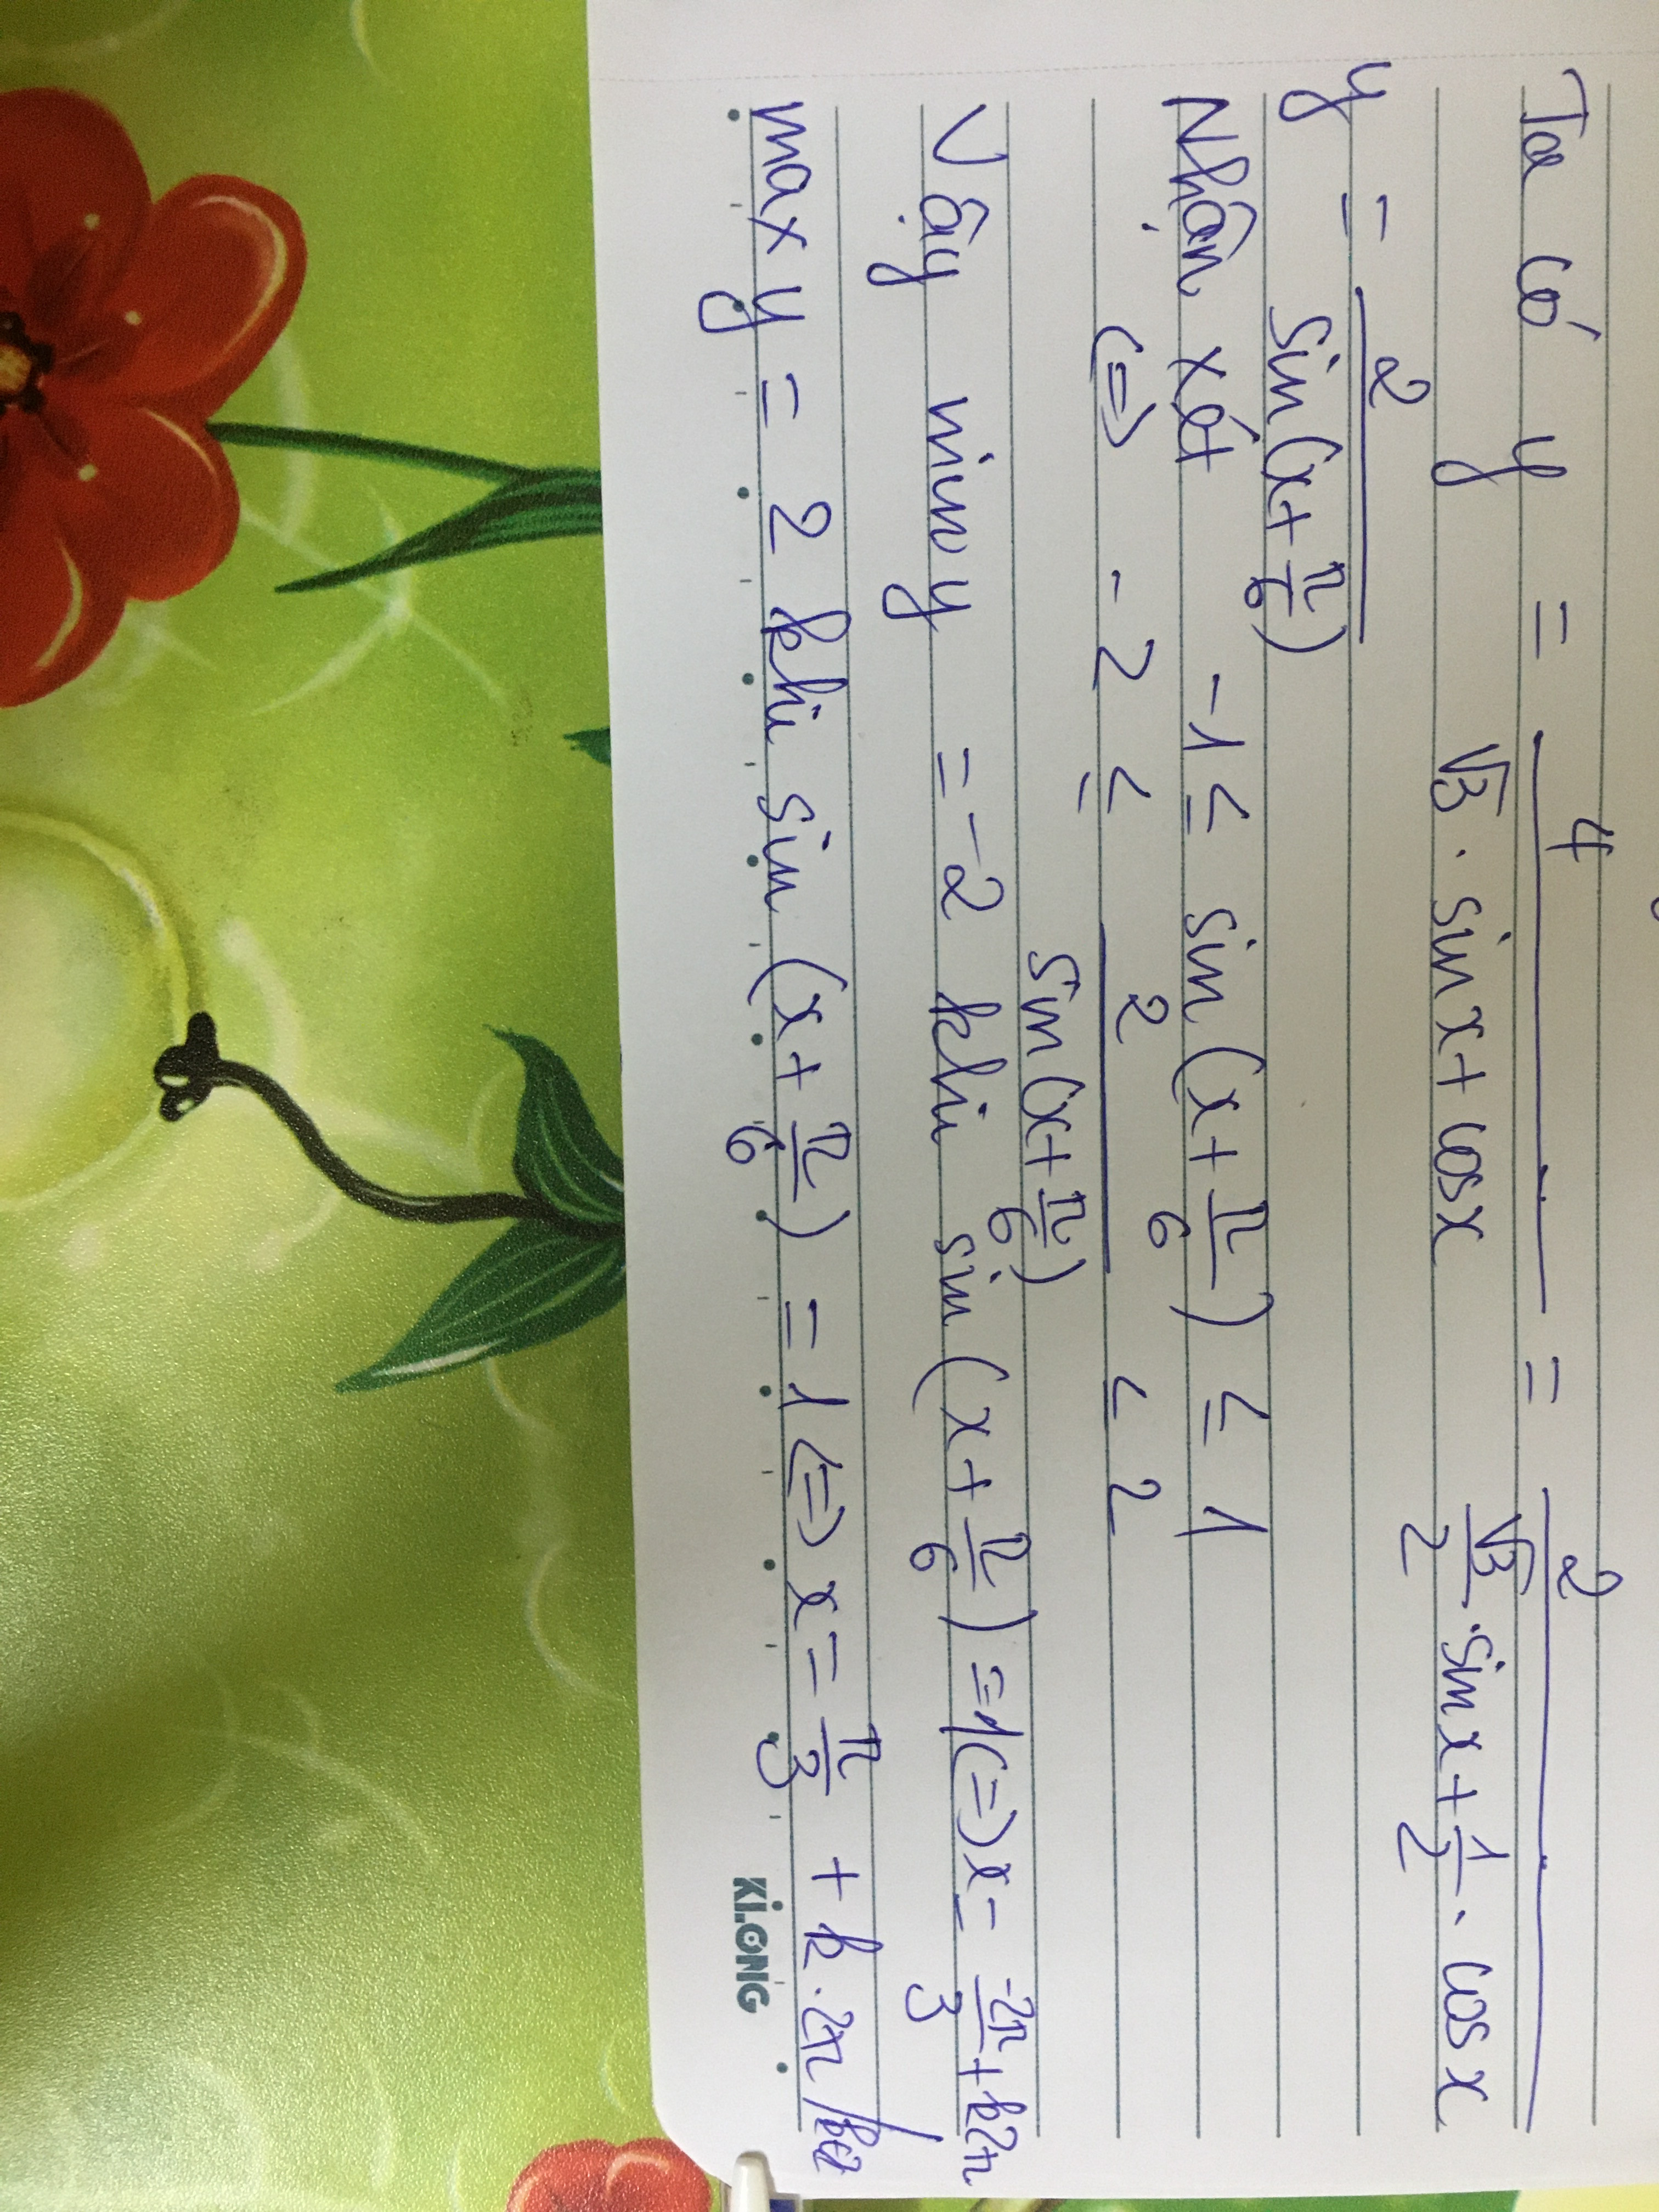 Ta có y = 4 / (√3 . sin x + cos x) = 2 / (√3/2 . sin x + 1/2 . cos x)
y = 2 / sin(x + π/6)
Nhận xét -1 ≤ sin (x + π/6) ≤ 1
(=) -2 ≤ 2 / sin(x + π/6) < 2
Vậy min y = -2 khi sin (x + π/6) = -1 (=) x = -2π/3 + k2π
max y = 2 khi sin (x + π/6) = 1 (=) x = π/3 + k . 2π /
Ki.ONG